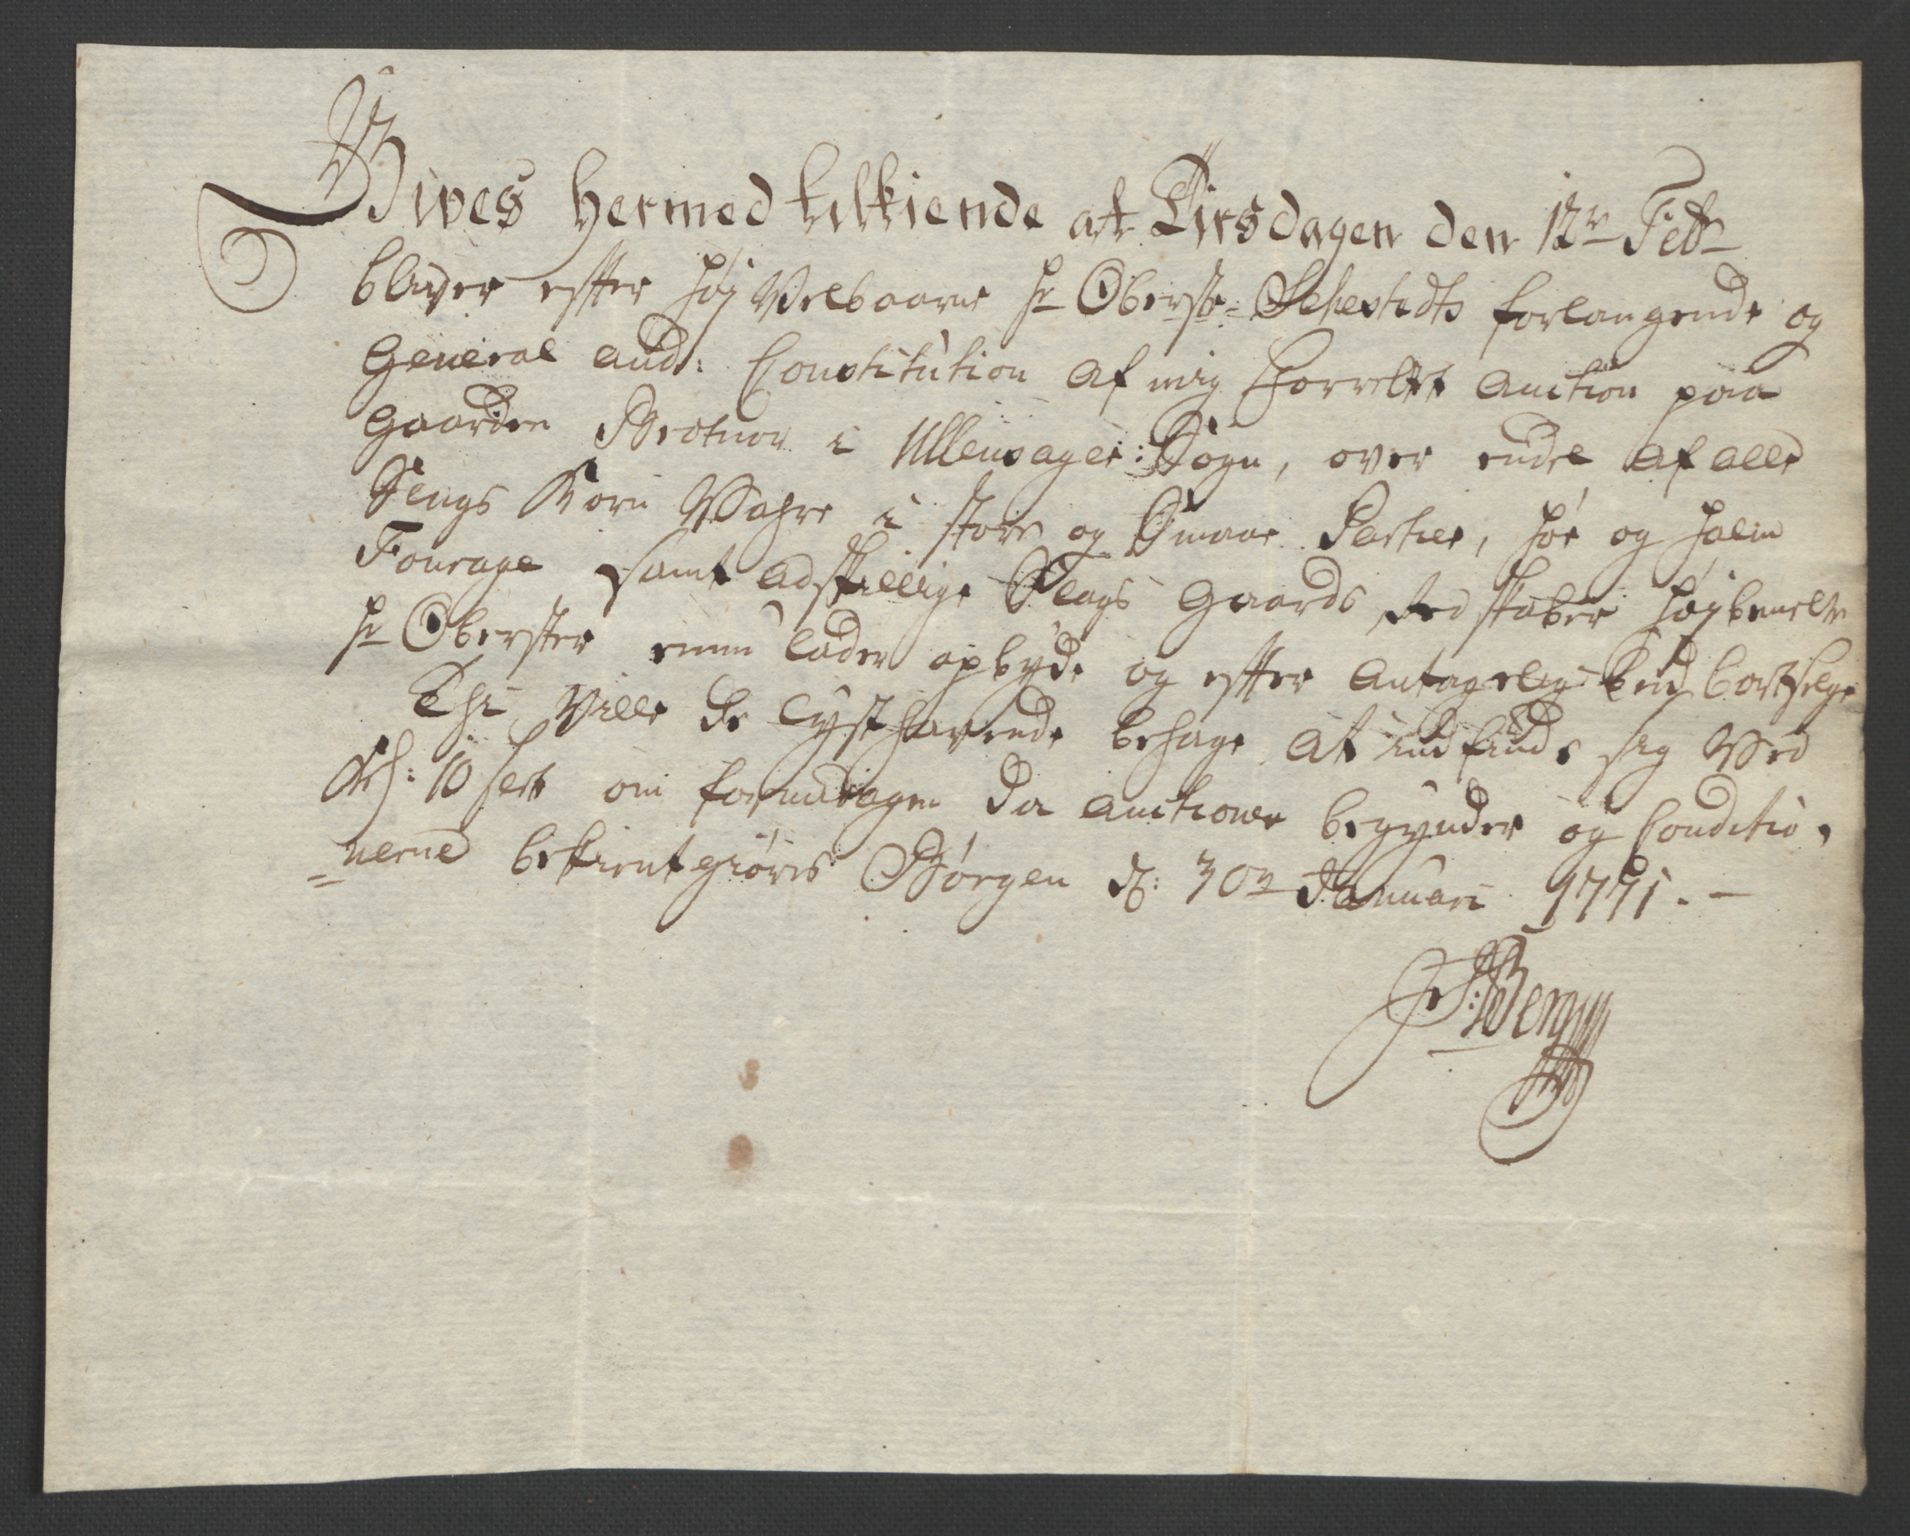 Gives hermed tilkiende at Tirsdagen den 12te Febr
bliver efter Høj Velbaarne Hr Oberste Sehestedts forlangende og
General Aud: Constitution af mig forrettet Auction paa
Gaarden Brotnov i Ullensager Sogn, over endel af alle
Slugs Korn Wahre i store og Smaae Partier, Høe og Halm
Fourage samt adskillige Slags Gaards Redskaber Højbemelte
Hr Oberster lader opbyde og efter antagelig Bud bortselge
Thi Ville de lysthavende behage at indfinde sig Ved
Kl: 10 slet om formidagen da Auctionen begynder og Conditio,
nerne bekientgiøres Børgen d: 30te Januari 1771. -
Berg